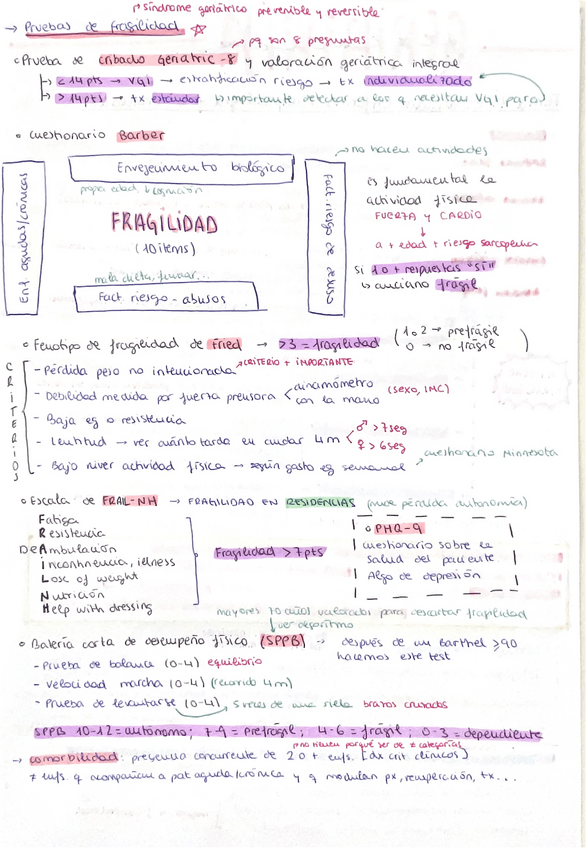 síndrome geriátrico prevenible y reversible
→ Pruebas de fragilidad ☆
→ pq son 8 preguntas
• Prueba de cribado Geriatric-8 y valoración geriátrica integral
→ ≤14pts → VGI → estratificación riesgo → tx individualizado
→ >14pts → tx estándar → importante detectar a los q necesitan VGI para
• Cuestionario Barber
→ no hacen actividades
Enf agudas/crónicas
Envejecimiento biológico
propia edad, ↓ cognición
FRAGILIDAD
(10 items)
mala dieta, fumar...
Fact riesgo - abusos
Fact. riesgo de desuso
es fundamental la
actividad física
FUERZA y CARDIO
↓
a + edad + riesgo sarcopenia
si 1 o + respuestas "sí"
↳ anciano frágil
• Fenotipo de fragilidad de Fried → >3 = fragilidad (1 o 2 → prefrágil
0 → no frágil)
CRITERIOS
- Pérdida peso no intencionada → CRITERIO + IMPORTANTE
- Debilidad medida por fuerza prensora < dinamómetro
con la mano (sexo, IMC)
- Baja eg o resistencia
- Lentitud → ver cuánto tarda en andar 4m < ♂ >7seg
♀ >6seg
- Bajo nivel actividad física → según gasto eg semanal → cuestionario Minnesota
• Escala de FRAIL-NH → FRAGILIDAD EN RESIDENCIAS (mide pérdida autonomía)
Fatiga
Resistencia
DeAmbulación
Incontinencia, illness
Loss of weight
Nutrición
Help with dressing
Fragilidad >7pts
• PHQ-9
cuestionario sobre la
salud del paciente
Algo de depresión
mayores 70 años valorados para descartar fragilidad
↓ ver algoritmo
• Batería corta de desempeño físico (SPPB) → después de un Barthel ≥90
hacemos este test
- Prueba de balance (0-4) equilibrio
- Velocidad marcha (0-4) (recorrido 4m)
- Prueba de levantarse (0-4), 5 veces de una silla brazos cruzados
SPPB 10-12 = autónomo; 7-9 = prefrágil; 4-6 = frágil; 0-3 = dependiente
no tienen porqué ser de ≠ categorías
→ comorbilidad: presencia concurrente de 2 o + enfs. [dx crit clínicos]
≠ enfs. q acompañan a pat aguda/crónica y q modulan px, recuperación, tx...